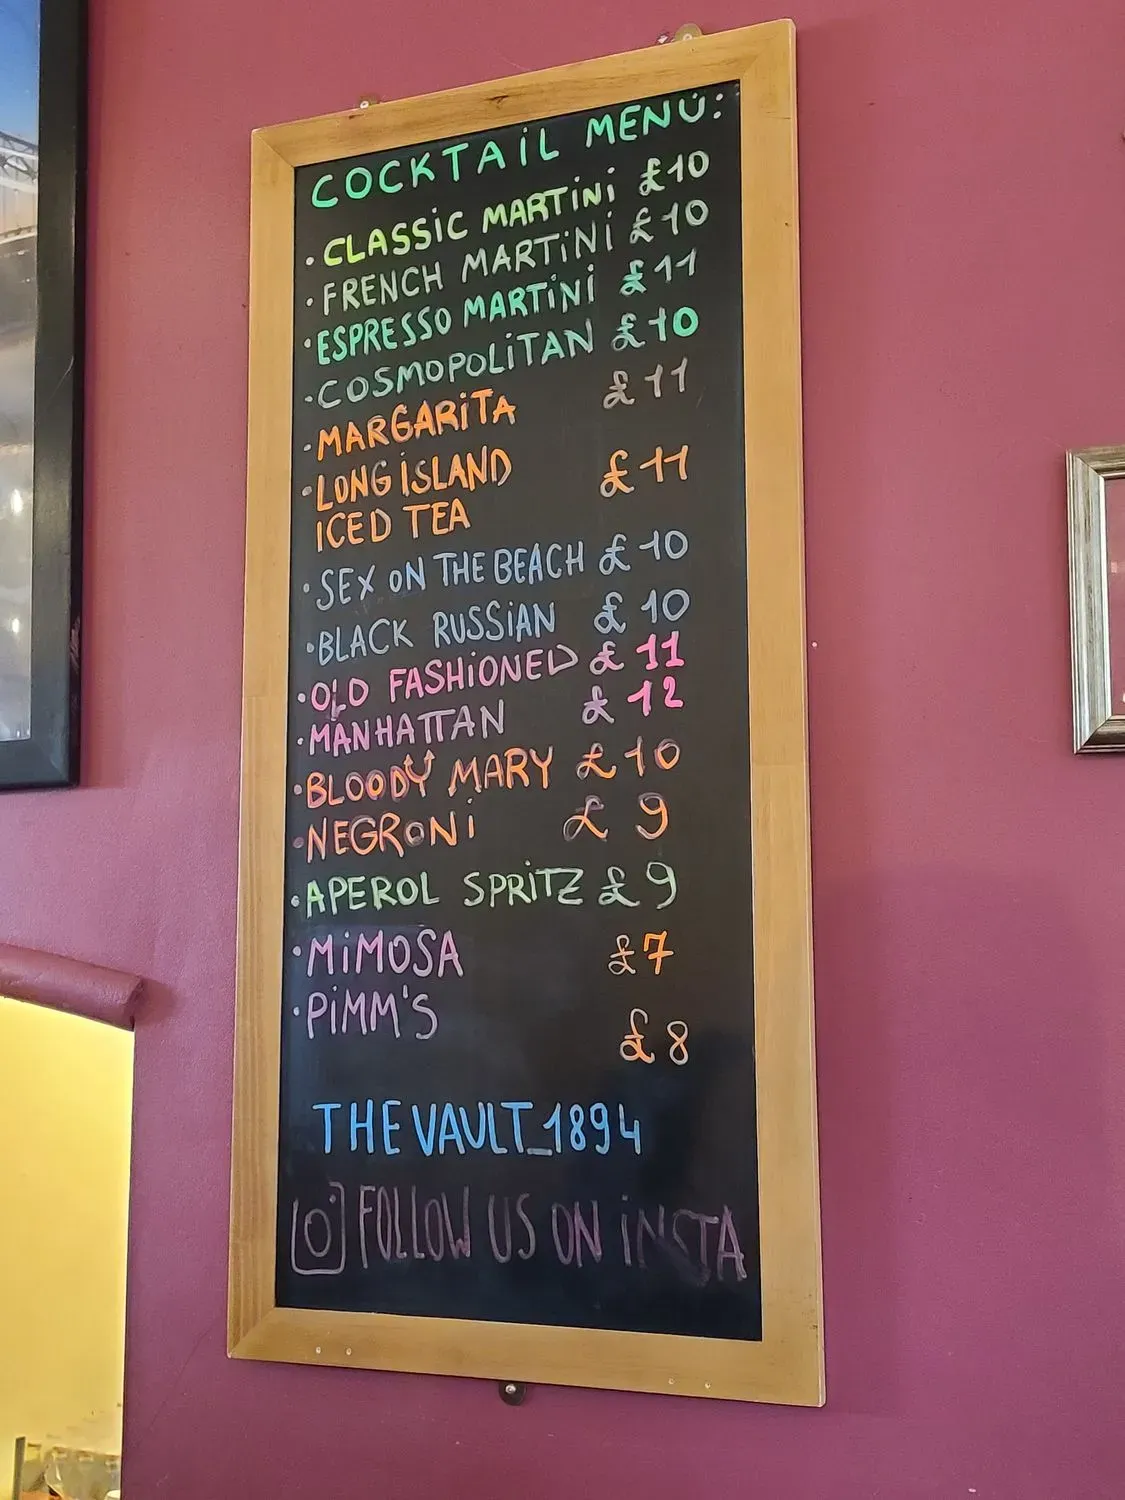 COCKTAIL MENU:
· CLASSIC MARTINI £10
· FRENCH MARTINI £10
· ESPRESSO MARTINI £11
· COSMOPOLITAN £10
· MARGARITA £11
· LONG ISLAND £11
ICED TEA
· SEX ON THE BEACH £10
· BLACK RUSSIAN £10
· OLD FASHIONED £11
· MANHATTAN £12
· BLOODY MARY £10
· NEGRONI £9
· APEROL SPRITZ £9
· MIMOSA £7
· PIMM'S £8
THE VAULT_1894
FOLLOW US ON INSTA